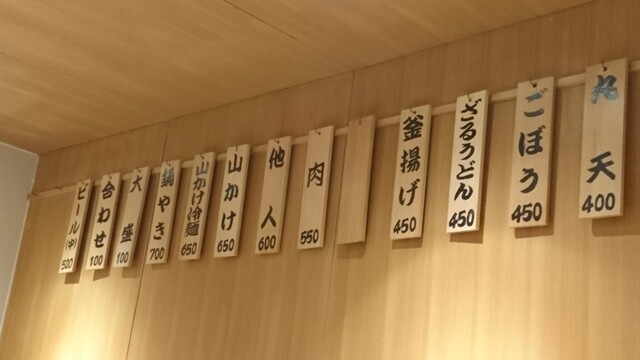 丸天
400
ごぼう
450
ざるうどん
450
釜揚げ
450
肉
550
他人
600
山かけ
650
山かけ冷麺
650
鍋やき
700
大盛
100
合わせ
100
ビール(中)
500